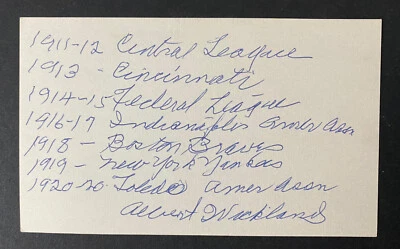 1911-12 Central League
1913 - Cincinnati
1914-15 Federal League
1916-17 Indianapolis Amer Assn
1918 - Boston Braves
1919 - New York Yankees
1920-20 Toledo Amer Assn
Albert Wickland